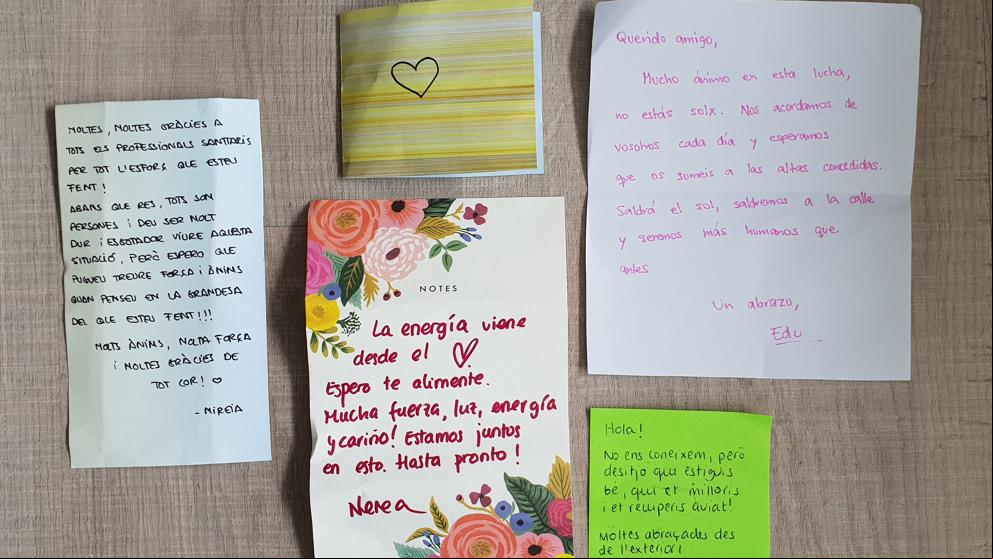 MOLTES, MOLTES GRÀCIES A
TOTS ELS PROFESSIONALS SANITARIS
PER TOT L'ESFORÇ QUE ESTEU
FENT!
ABANS QUE RES, TOTS SON
PERSONES i DEU SER MOLT
DUR i ESGOTADOR VIURE AQUESTA
SITUACIÓ, PERÒ ESPERO QUE
PUGUEU TREURE FORÇA i ÀNIMS
QUAN PENSEU EN LA GRANDESA
DEL QUE ESTEU FENT!!!
MOLTS ÀNIMS, MOLTA FORÇA
i MOLTES GRÀCIES DE
TOT COR! ♡
- MIREIA
NOTES
La energía viene
desde el ♡
Espero te alimente.
Mucha fuerza, luz, energía
y cariño! Estamos juntos
en esto. Hasta pronto!
Nerea
Querido amigo,
Mucho ánimo en esta lucha,
no estás solx. Nos acordamos de
vosotros cada día y esperamos
que os suméis a las altas concedidas.
Saldrá el sol, saldremos a la calle
y seremos más humanos que
antes.
Un abrazo,
Edu
Hola!
No ens coneixem, però
desitjo que estiguis
bé, que et milloris
i et recuperis aviat!
Moltes abraçades des
de l'exterior!